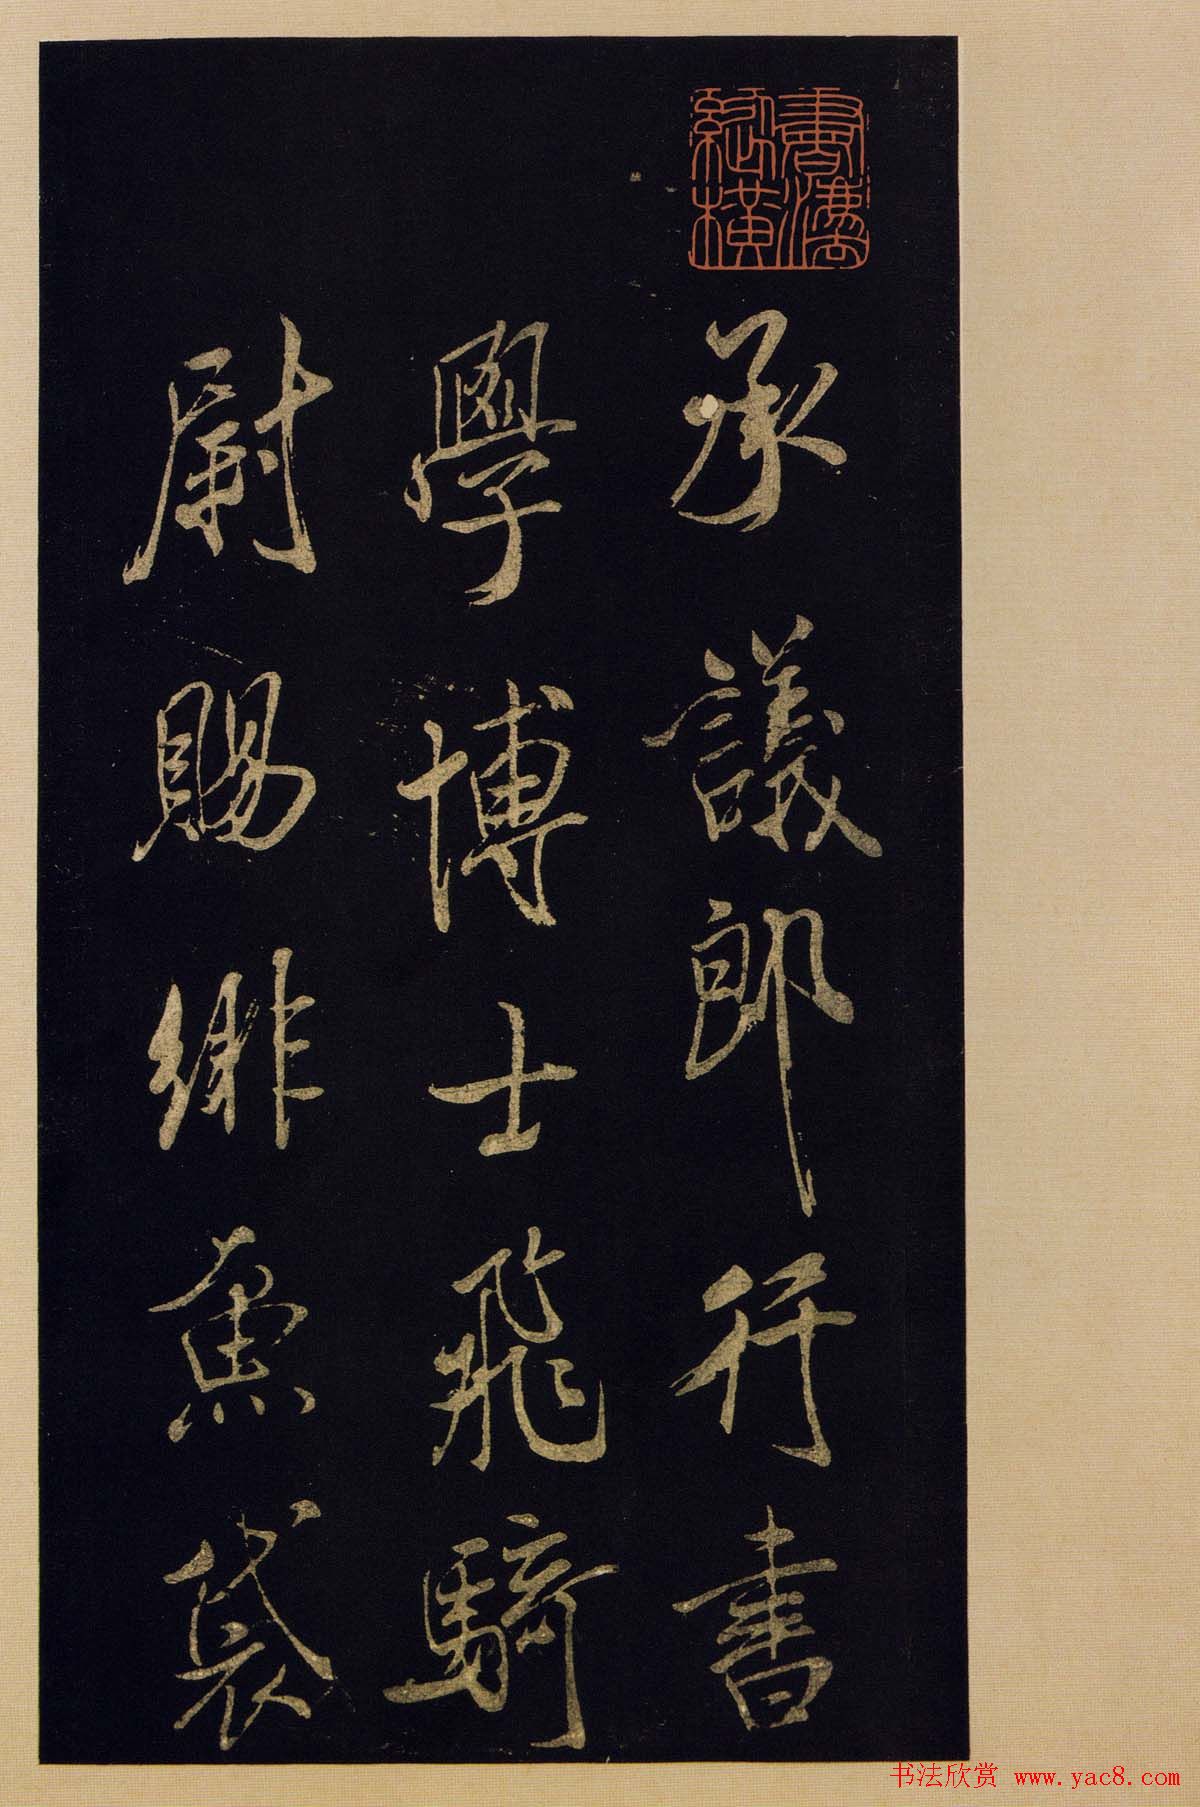 書學
縱橫
承議郎行書
學博士飛騎
尉賜緋魚袋
书法欣赏 www.yac8.com